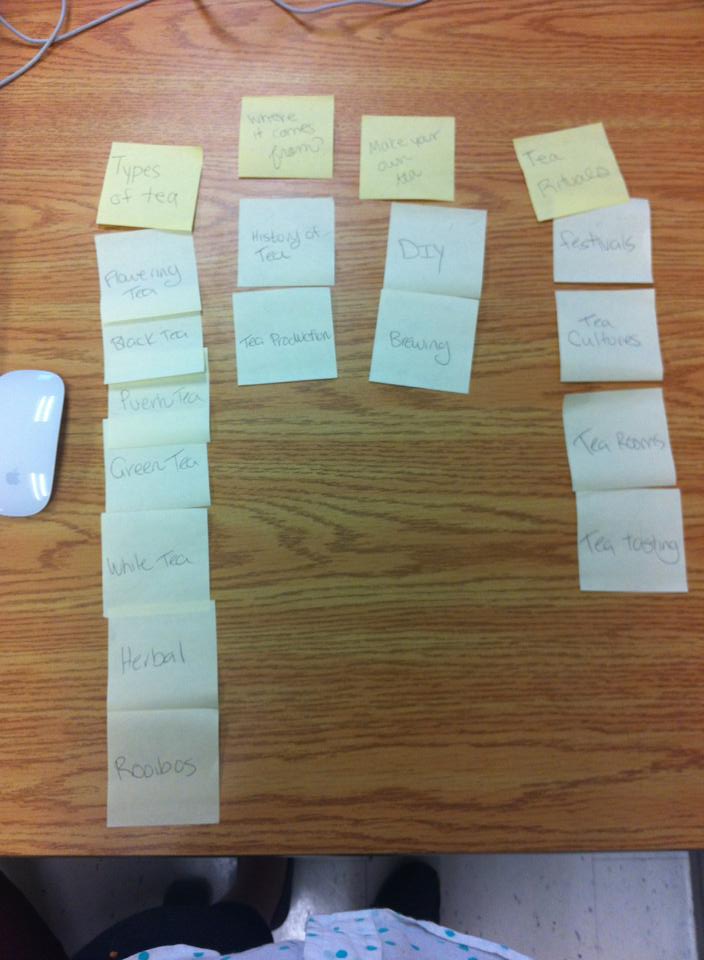 Types
of tea
Flowering
Tea
Black Tea
Puerh Tea
Green Tea
White Tea
Herbal
Rooibos
Where
it comes
from?
History of
Tea
Tea Production
Make your
own
tea
DIY
Brewing
Tea
Rituals
festivals
Tea
Cultures
Tea Rooms
Tea tasting